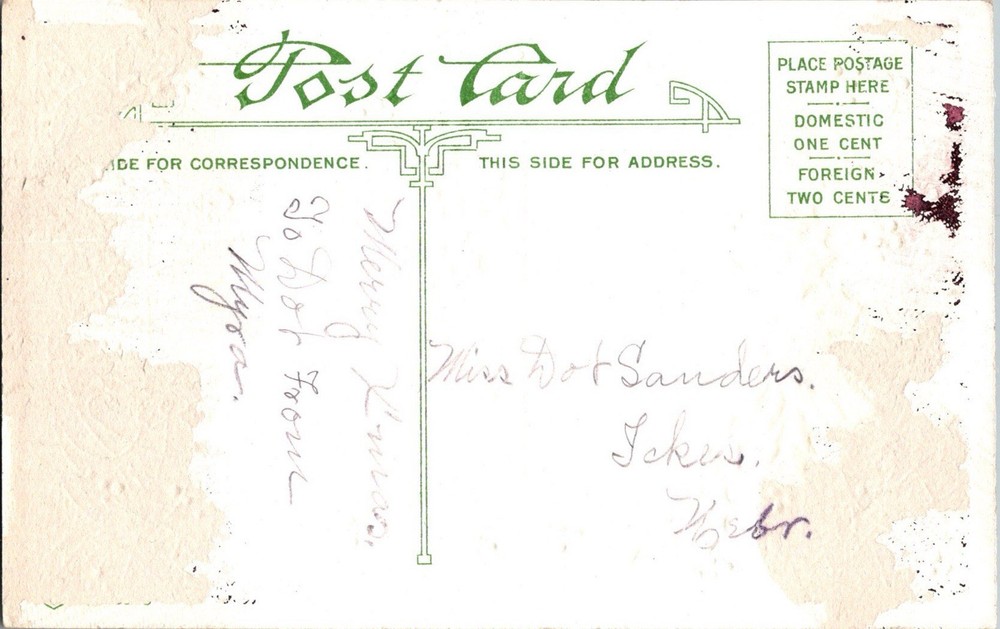 Post Card
PLACE POSTAGE
STAMP HERE
DOMESTIC
ONE CENT
FOREIGN
TWO CENTS
IDE FOR CORRESPONDENCE.
THIS SIDE FOR ADDRESS.
Merry X'mas.
To Dot From
Myra.
Miss Dot Sanders.
Ickes.
Nebr.